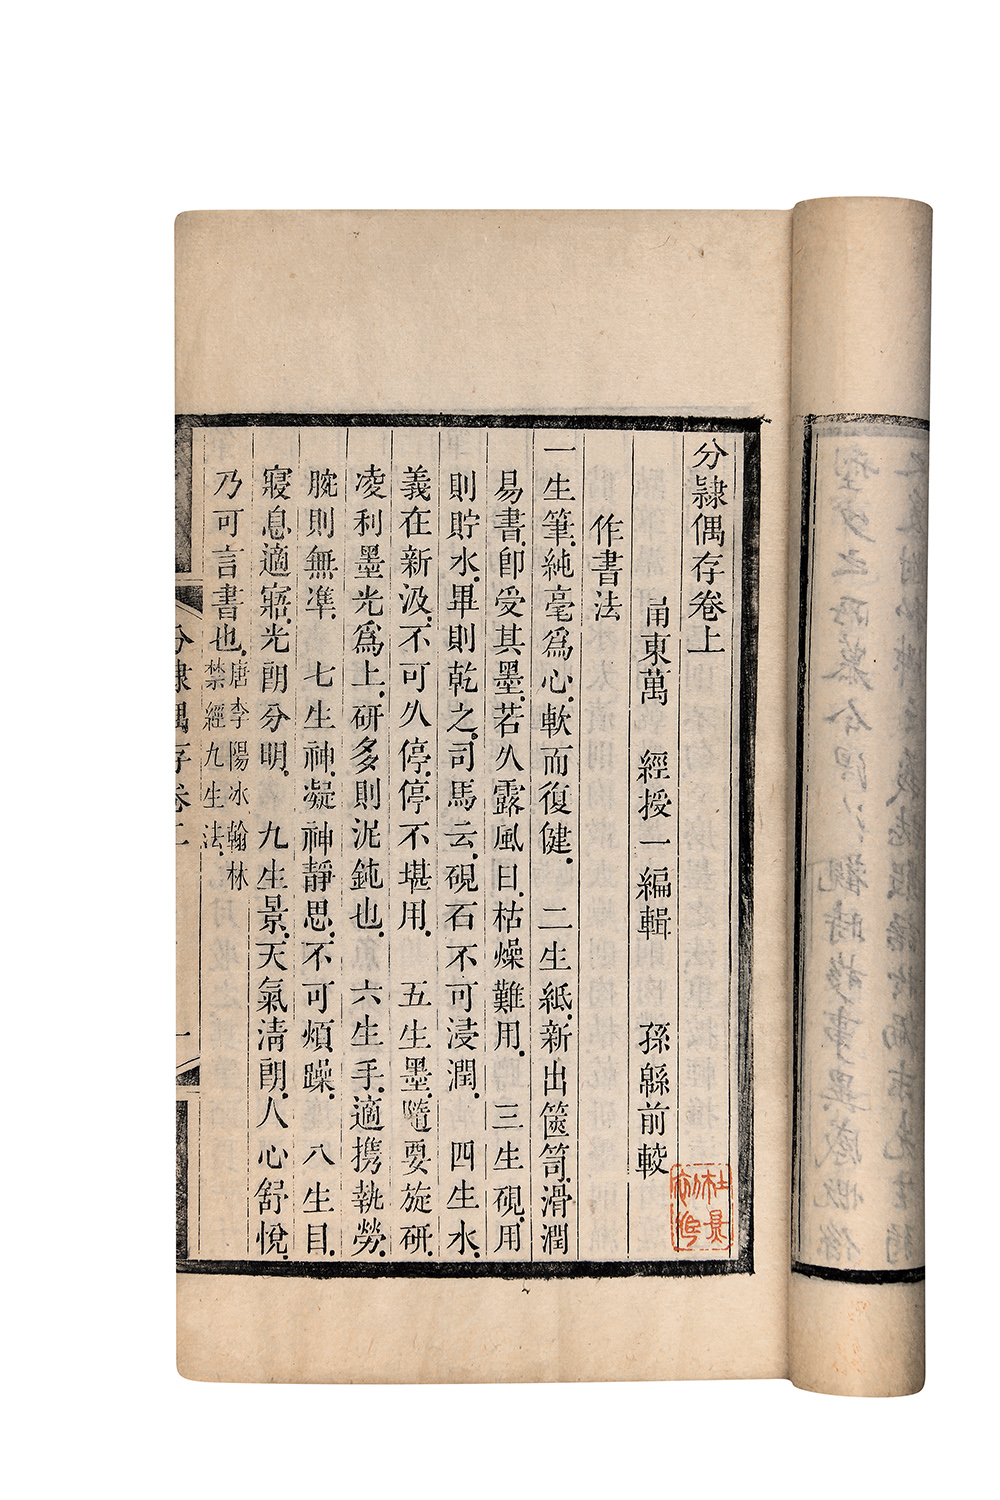 分隷偶存卷上
甬東萬　經授一編輯　孫緜前較
作書法
一生筆純毫爲心軟而復健　二生紙新出篋笥滑潤
易書卽受其墨若久露風日枯燥難用　三生硯用
則貯水畢則乾之司馬云硯石不可浸潤　四生水
義在新汲不可久停停不堪用　五生墨隨要旋研
凌利墨光爲上研多則泥鈍也　六生手適攜執勞
腕則無準　七生神凝神靜思不可煩躁　八生目
寢息適寤光朗分明　九生景天氣淸朗人心舒悅
乃可言書也唐李陽冰翰林禁經九生法
分隷偶存卷上
一